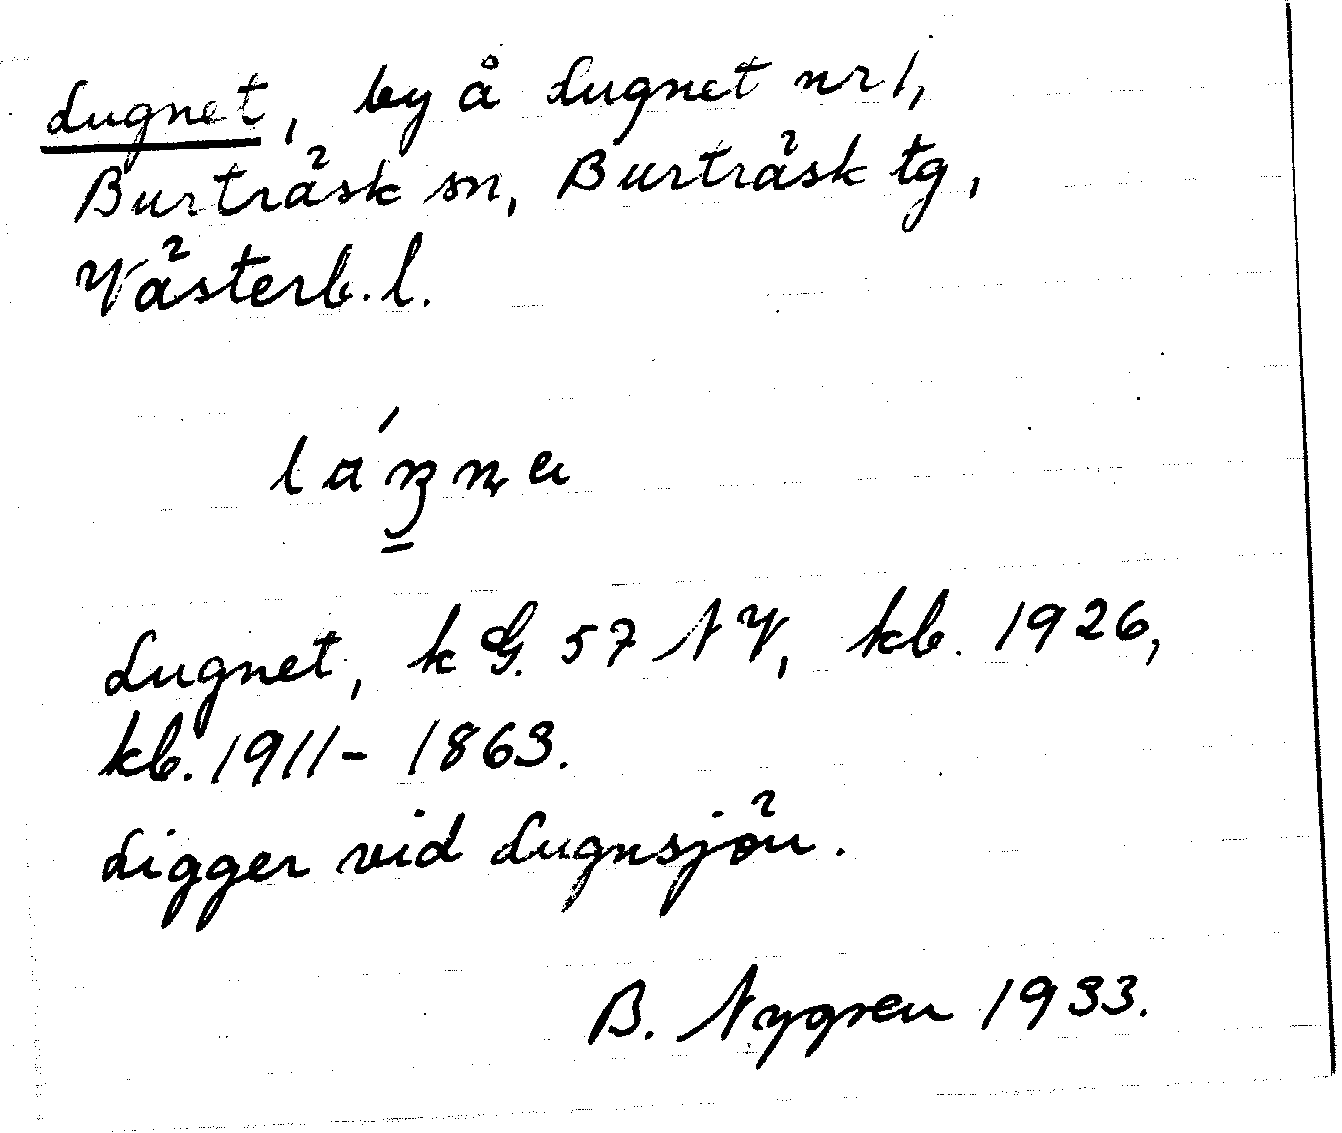 Lugnet, by å Lugnet nr 1,
Burträsk sn, Burträsk tg,
Västerb. l.
Lugnet, k G. 57 NV, kb. 1926,
kb. 1911 - 1863.
Ligger vid Lugnsjön.
B. Nygren 1933.